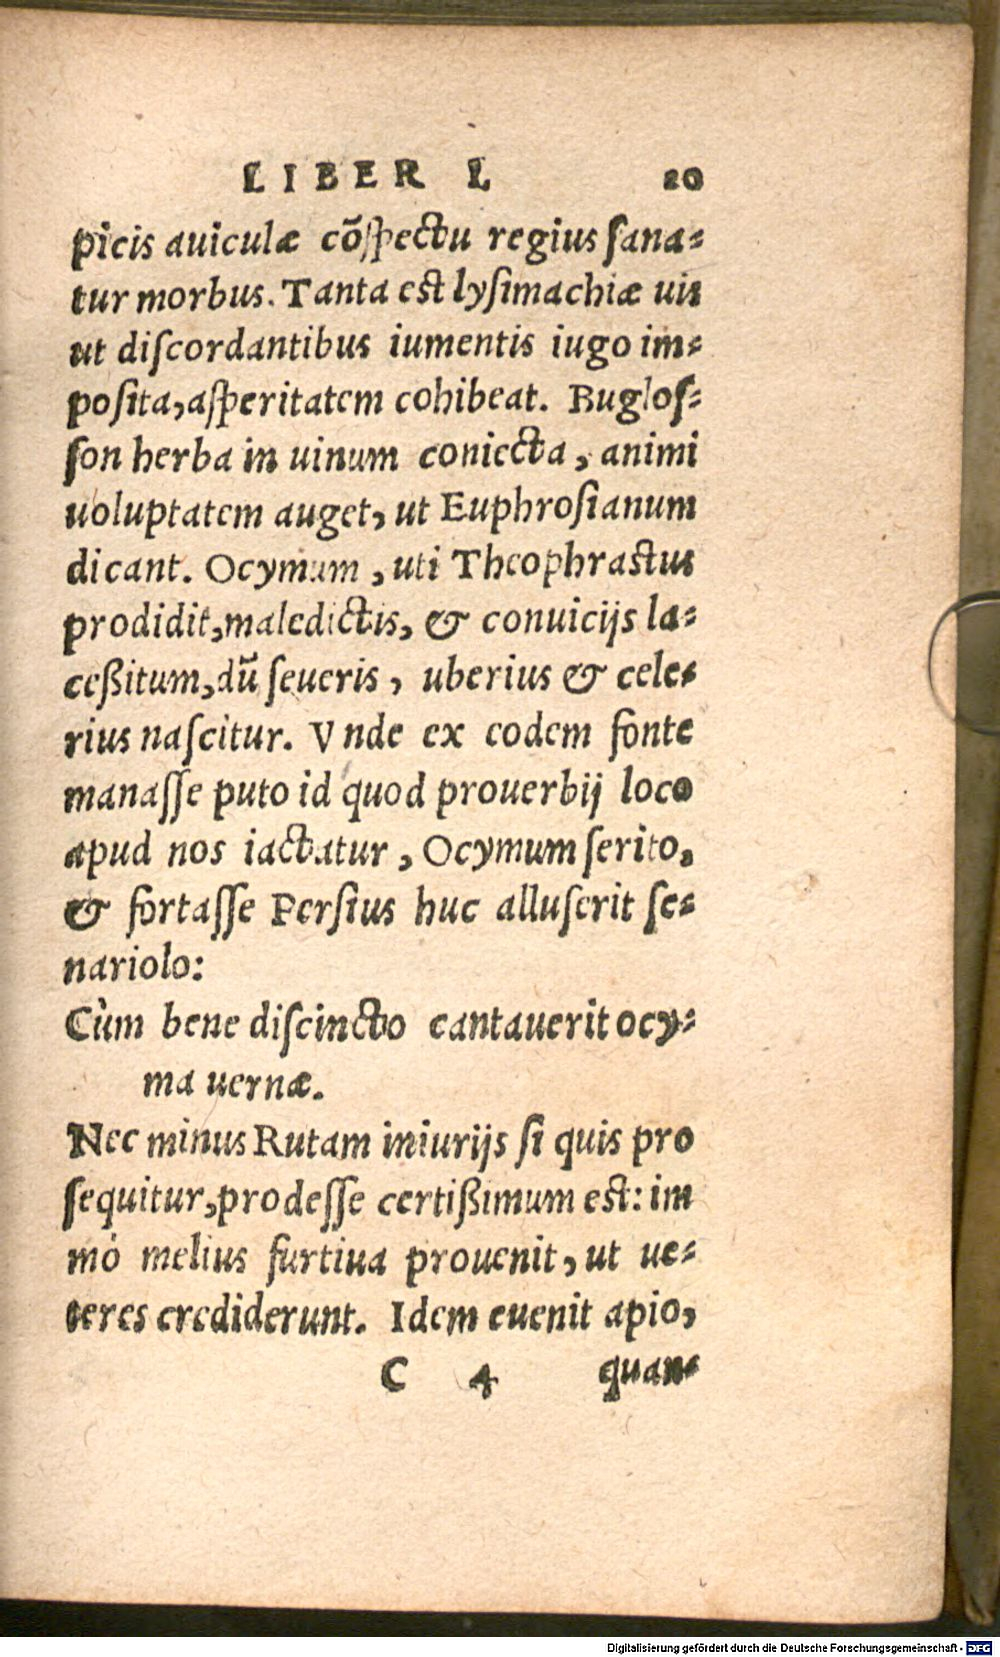 LIBER I. 20
picis auiculæ cõſpectu regius ſana-
tur morbus. Tanta est lyſimachiæ uis
ut diſcordantibus iumentis iugo im-
poſita, aſperitatem cohibeat. Bugloſ-
ſon herba in uinum coniecta, animi
uoluptatem auget, ut Euphroſianum
dicant. Ocymum, uti Theophrastus
prodidit, maledictis, & conuicijs la-
ceßitum, dũ ſeueris, uberius & cele-
rius naſcitur. Vnde ex eodem fonte
manaſſe puto id quod prouerbij loco
apud nos iactatur, Ocymum ſerito,
& fortaſſe Perſius huc alluſerit ſe-
nariolo:
Cùm bene diſcincto cantauerit ocy-
ma uernæ.
Nec minus Rutam iniurijs ſi quis pro
ſequitur, prodeſſe certißimum est: im
mò melius furtiua prouenit, ut ue-
teres crediderunt. Idem euenit apio,
C 4 quan-
Digitalisierung gefördert durch die Deutsche Forschungsgemeinschaft - DFG